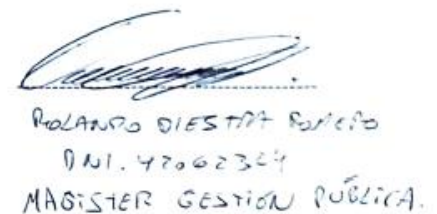 ROLANDO DIESTRA ROMERO
DNI. 47062364
MAGISTER GESTIÓN PÚBLICA.